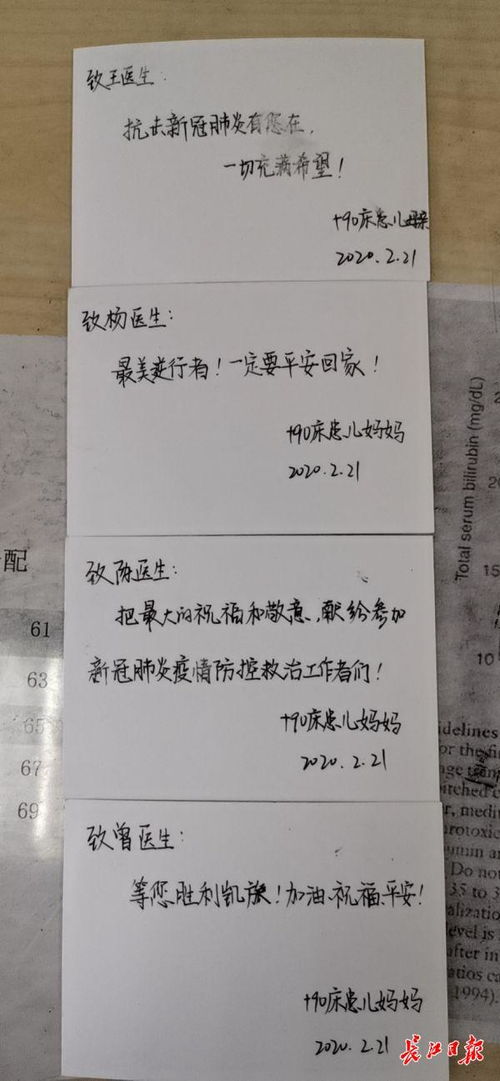 致王医生:
抗击新冠肺炎有您在,
一切充满希望!
+90床患儿母亲
2020.2.21
致杨医生:
最美逆行者!一定要平安回家!
+90床患儿妈妈
2020.2.21
致陈医生:
把最大的祝福和敬意,献给参加
新冠肺炎疫情防控救治工作者们!
+90床患儿妈妈
2020.2.21
致曾医生:
等您胜利凯旋!加油.祝福.平安!
+90床患儿妈妈
2020.2.21
配
61
63
65
67
69
Total serum bilirubin (mg/dL)
20
15
10
idelines
or the fi
itched
r, medi
rotoxic
Do not
35 to 3
alization
level is
after in
atios ca
1994).
长江日报